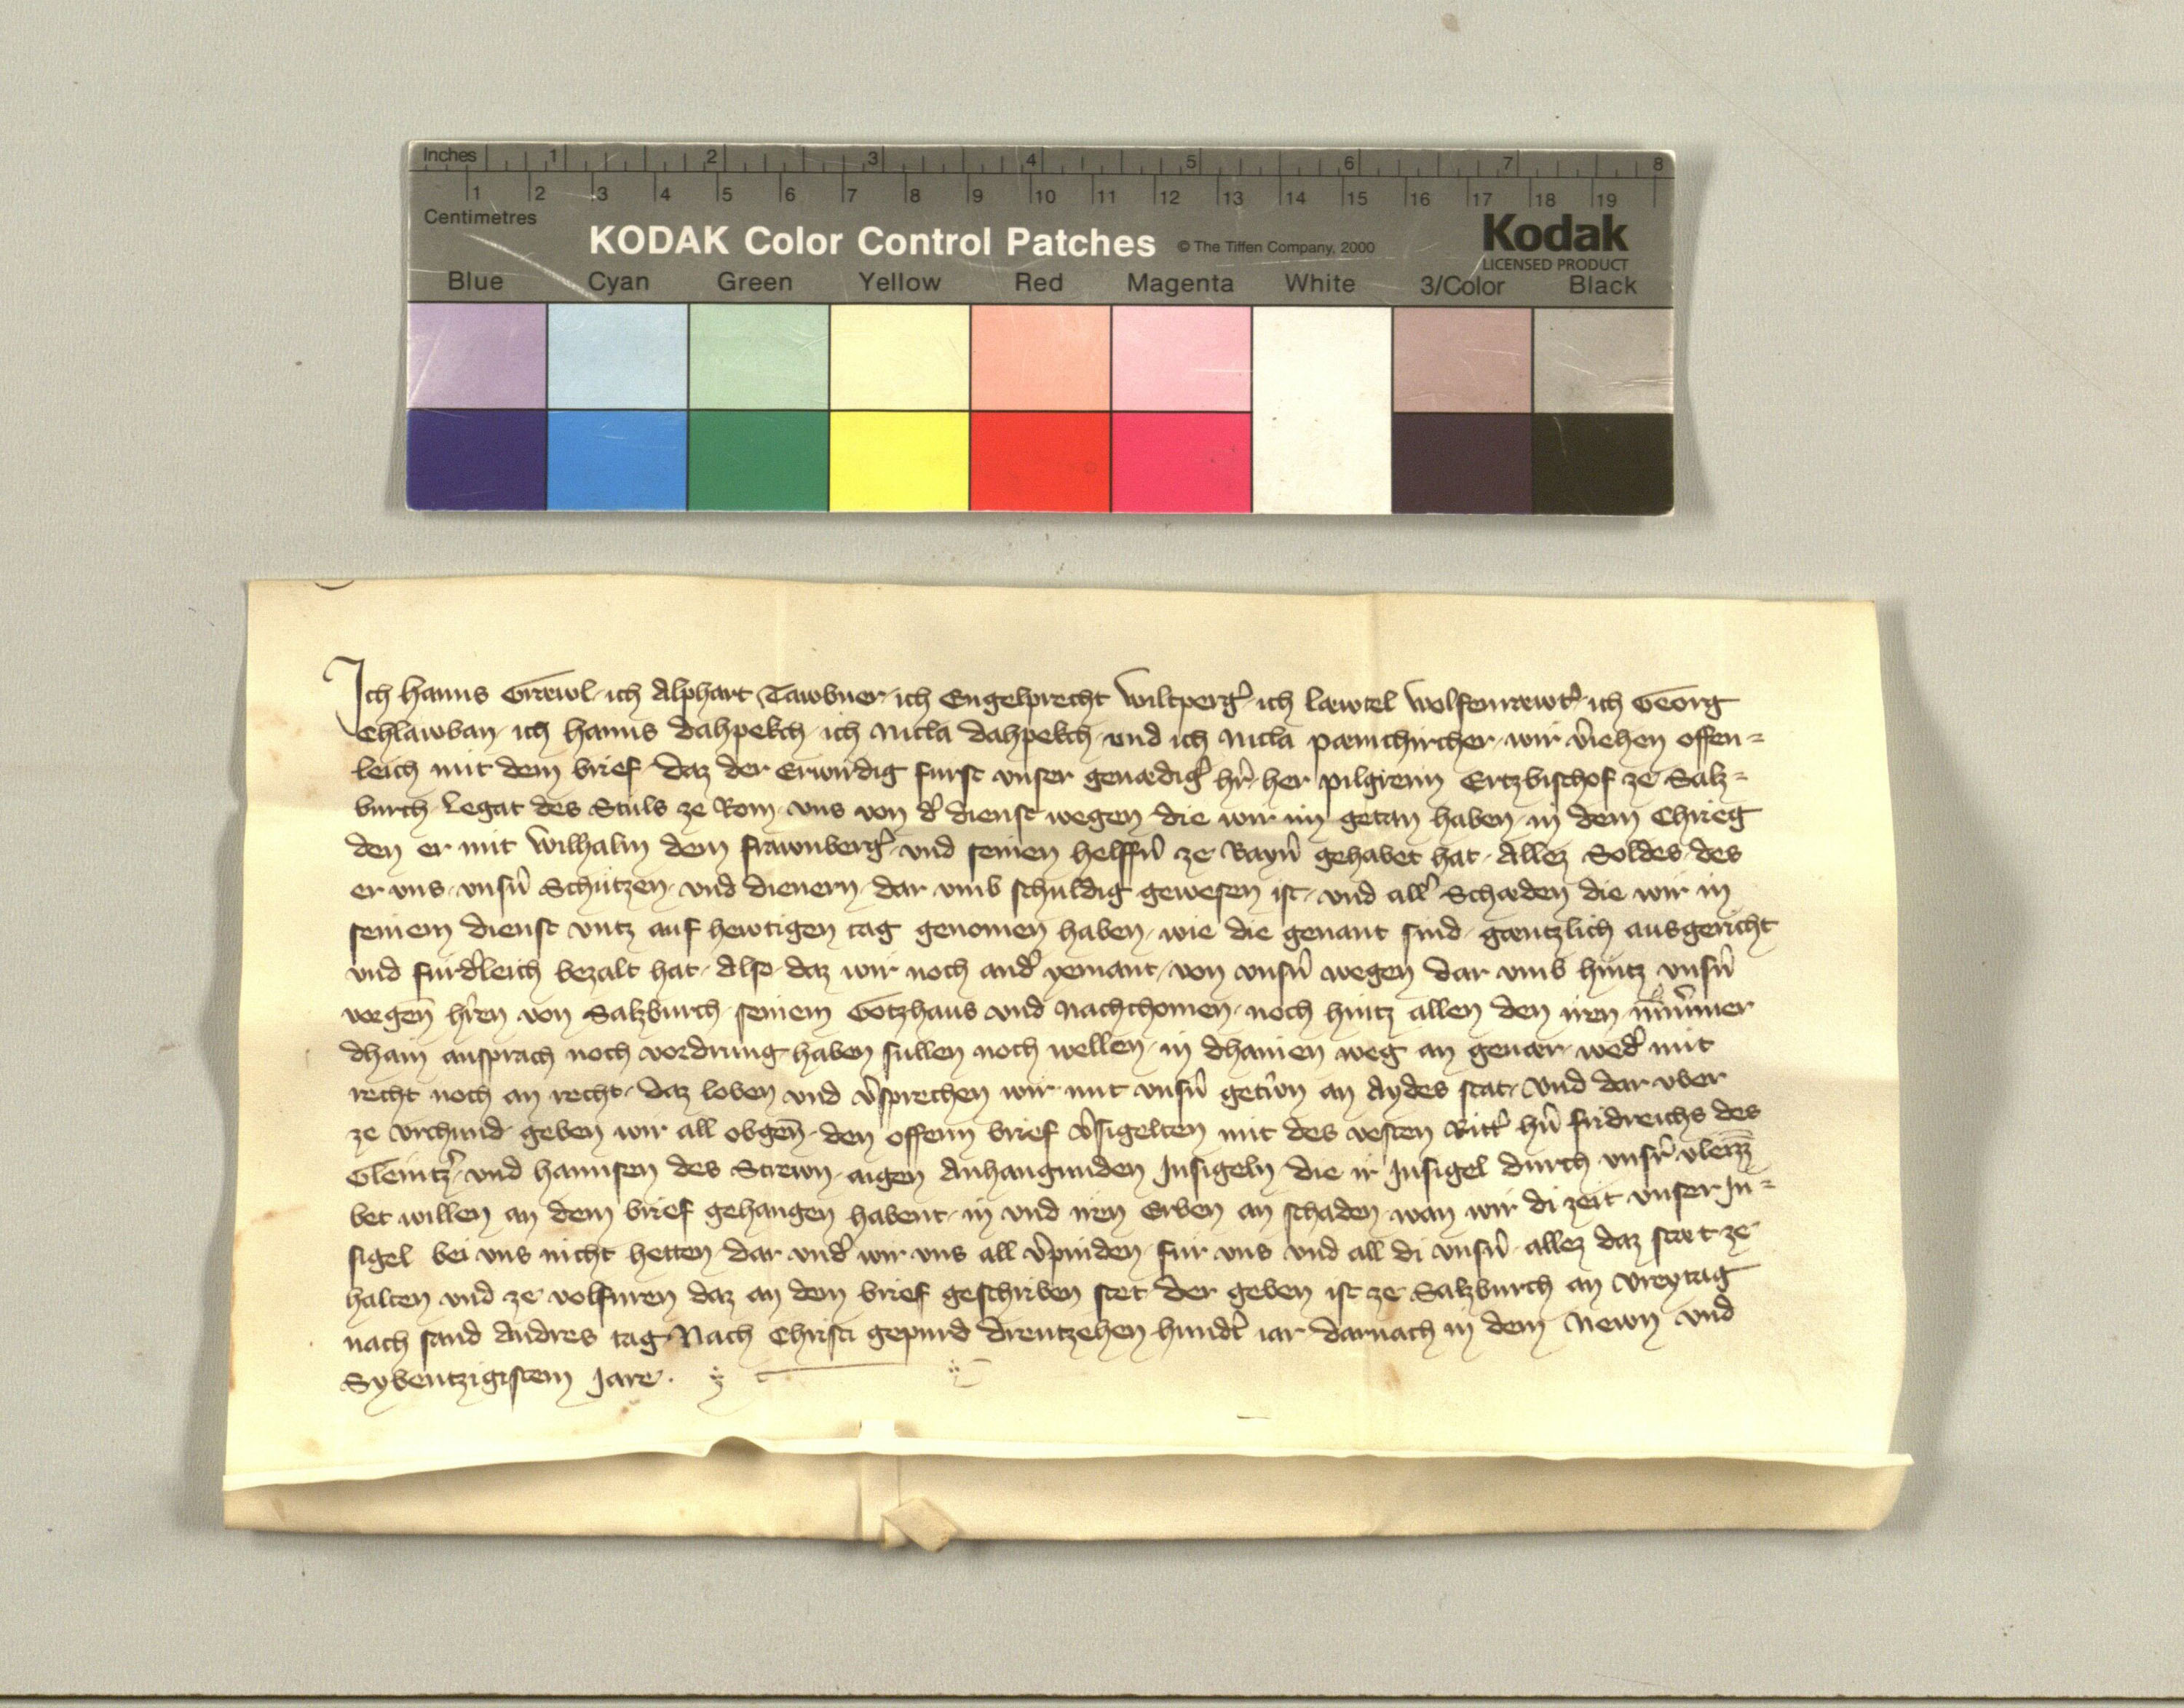 Inches 1 2 3 4 5 6 7 8
1 2 3 4 5 6 7 8 9 10 11 12 13 14 15 16 17 18 19
Centimetres
KODAK Color Control Patches © The Tiffen Company, 2000 Kodak
LICENSED PRODUCT
Blue Cyan Green Yellow Red Magenta White 3/Color Black
Ich Hanns Gräwl ich Alphart Tawbner ich Engelprecht Wiltperg̉ ich Läwtel Wolfenrewt̉ ich Georg
Chlawban ich Hanns Dahpekch ich Nicla Dahpekch und ich Nicla Pämchircher wir v̉iehen offen=
leich mit dem brief daz der Erwirdig furst unser genädig̉ hr̉ her Pilgreim Ertzbischof ze Salz=
burch Legat des Stuls ze Rom uns von d̉ dienst wegen die wir im getan haben in dem Chrieg
den er mit Wilhalm dem Frawnberg̉ und seinen helffn̉ ze Bayn̉ gehabet hat allez Soldes des
er uns unsn̉ Schützen und dienern dar umb schuldig gewesen ist und all̉ Schäden die wir in
seinem dienst untz auf hewtigen tag genomen haben wie die genant sind gäntzlich ausgericht
und fürd̉leich bezalt hat Also daz wir noch and̉ yemant von unsn̉ wegen dar umb hintz unsn̉
vorgen̄ hr̉en von Salzburch seinem Gotzhaus und Nachchomen noch hintz allen den iren nimm̉mer
dhain ansprach noch vordrung haben sullen noch wellen in dhainen weg an genär wed̉ mit
recht noch an recht daz loben und v̉sprechen wir mit unsn̉ getr̉wn an Aydes stat und dar uber
ze urchund geben wir all obgen̄ den offenn brief v̉sigelten mit des vesten Ritt̉ hn̉ Fridreichs des
Gleintz̉ und Hannsen des Strewn aigen Anhangunden Insigeln die ir Insigel durch unsr̉ vleizz̄
bet willen an dem brief gehangen habent in und iren Erben an schaden wan wir di zeit unser In=
sigel bei uns nicht hetten dar und̉ wir uns all v̉pinden für uns und all di unsn̉ allez daz stät ze
halten und ze volfuren daz an dem brief geschriben stet der geben ist ze Salzburch an Vreytag
nach sand Andres tag Nach Christi gepurd dreutzehen hund̉t iar darnach in dem Newn und
Sybentzigistem Jare.